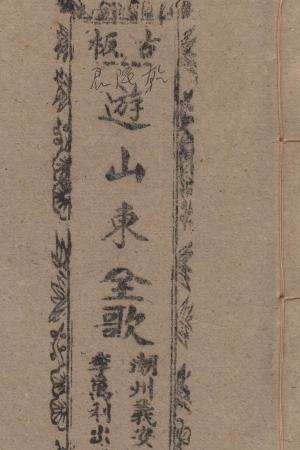 古板
遊山東全歌
潮州義安
李萬利出